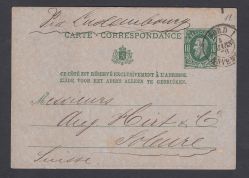 Via Luxembourg
CARTE-CORRESPONDANCE
CE CÔTÉ EST RÉSERVÉ EXCLUSIVEMENT À L'ADRESSE.
ZIJDE VOOR HET ADRES ALLEEN TE GEBRUIKEN.
Messieurs
Aug Hirt & Cº
Soleure
Suisse